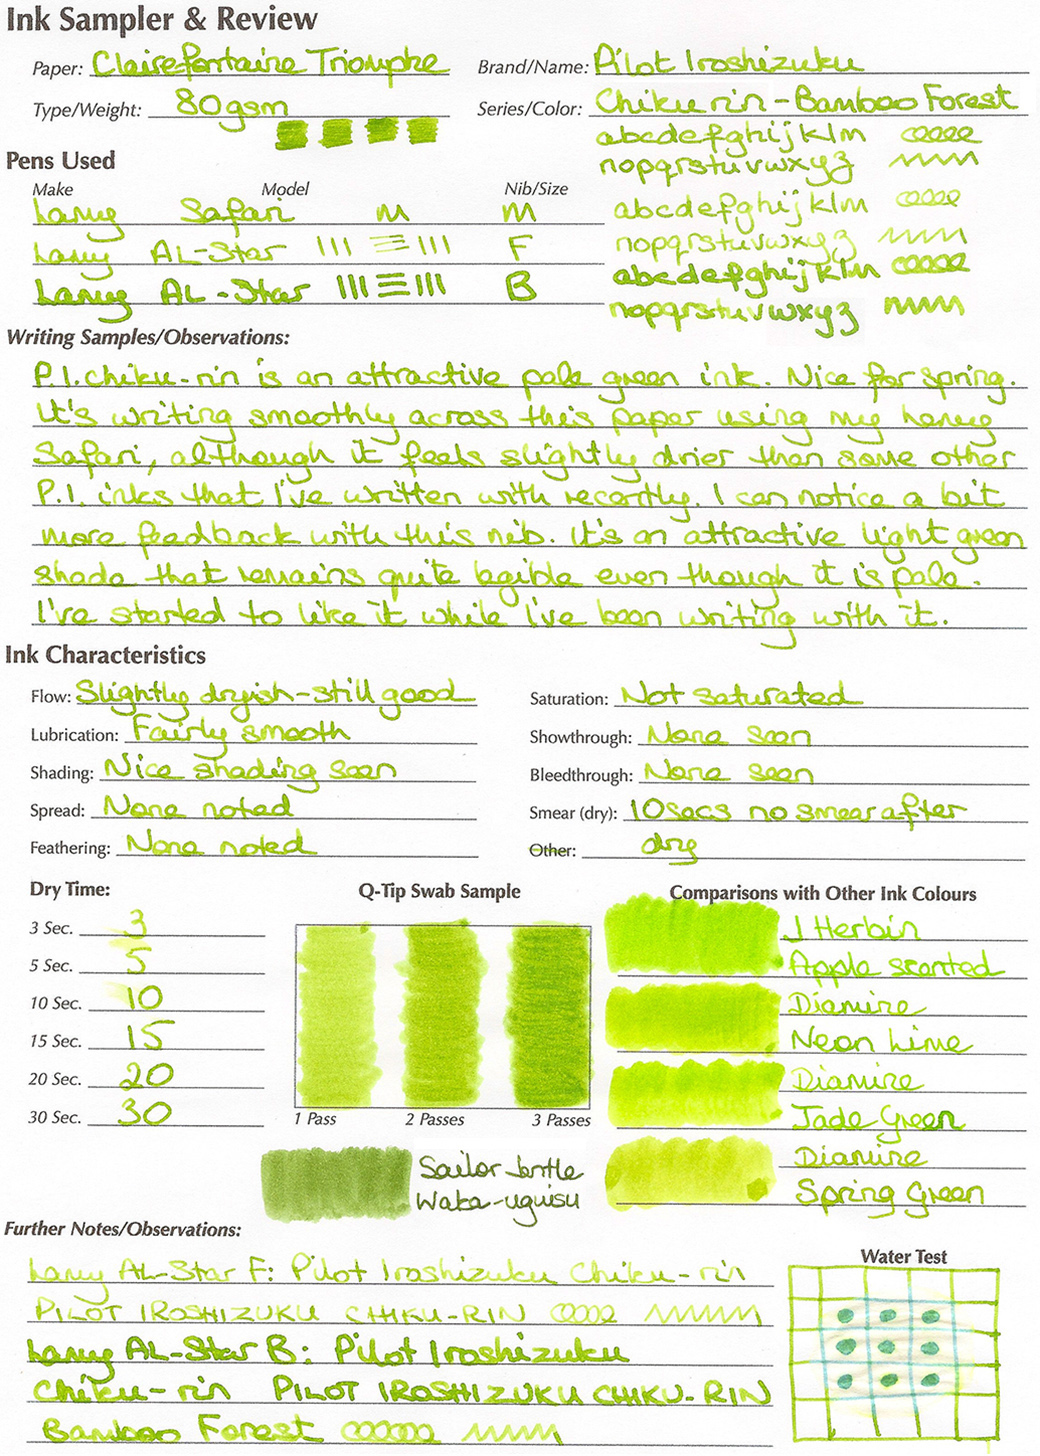 Ink Sampler & Review
Paper: Clairefontaine Triomphe
Brand/Name: Pilot Iroshizuku
Type/Weight: 80gsm
Series/Color: Chiku rin - Bamboo Forest
abcdefghijklm
nopqrstuvwxyz
Pens Used
Make Model Nib/Size
Lamy Safari M M
abcdefghijklm
Lamy AL-Star F
nopqrstuvwxyz
abcdefghijklm
Lamy AL-Star B
nopqrstuvwxyz
Writing Samples/Observations:
P.I. chiku-rin is an attractive pale green ink. Nice for spring.
It's writing smoothly across this paper using my Lamy
Safari, although it feels slightly drier than some other
P.I. inks that I've written with recently. I can notice a bit
more feedback with this nib. It's an attractive light green
shade that remains quite legible even though it is pale.
I've started to like it while I've been writing with it.
Ink Characteristics
Flow: Slightly dryish - still good
Saturation: Not saturated
Lubrication: Fairly smooth
Showthrough: None seen
Shading: Nice shading seen
Bleedthrough: None seen
Spread: None noted
Smear (dry): 10secs no smear after
Feathering: None noted
Other: dry
Dry Time:
3 Sec. 3
5 Sec. 5
10 Sec. 10
15 Sec. 15
20 Sec. 20
30 Sec. 30
Q-Tip Swab Sample
1 Pass 2 Passes 3 Passes
Sailor Jentle
Waka-uguisu
Comparisons with Other Ink Colours
J Herbin
Apple scented
Diamine
Neon Lime
Diamine
Jade Green
Diamine
Spring Green
Further Notes/Observations:
Lamy AL-Star F: Pilot Iroshizuku Chiku-rin
PILOT IROSHIZUKU CHIKU-RIN
Lamy AL-Star B: Pilot Iroshizuku
Chiku-rin PILOT IROSHIZUKU CHIKU-RIN
Bamboo Forest
Water Test